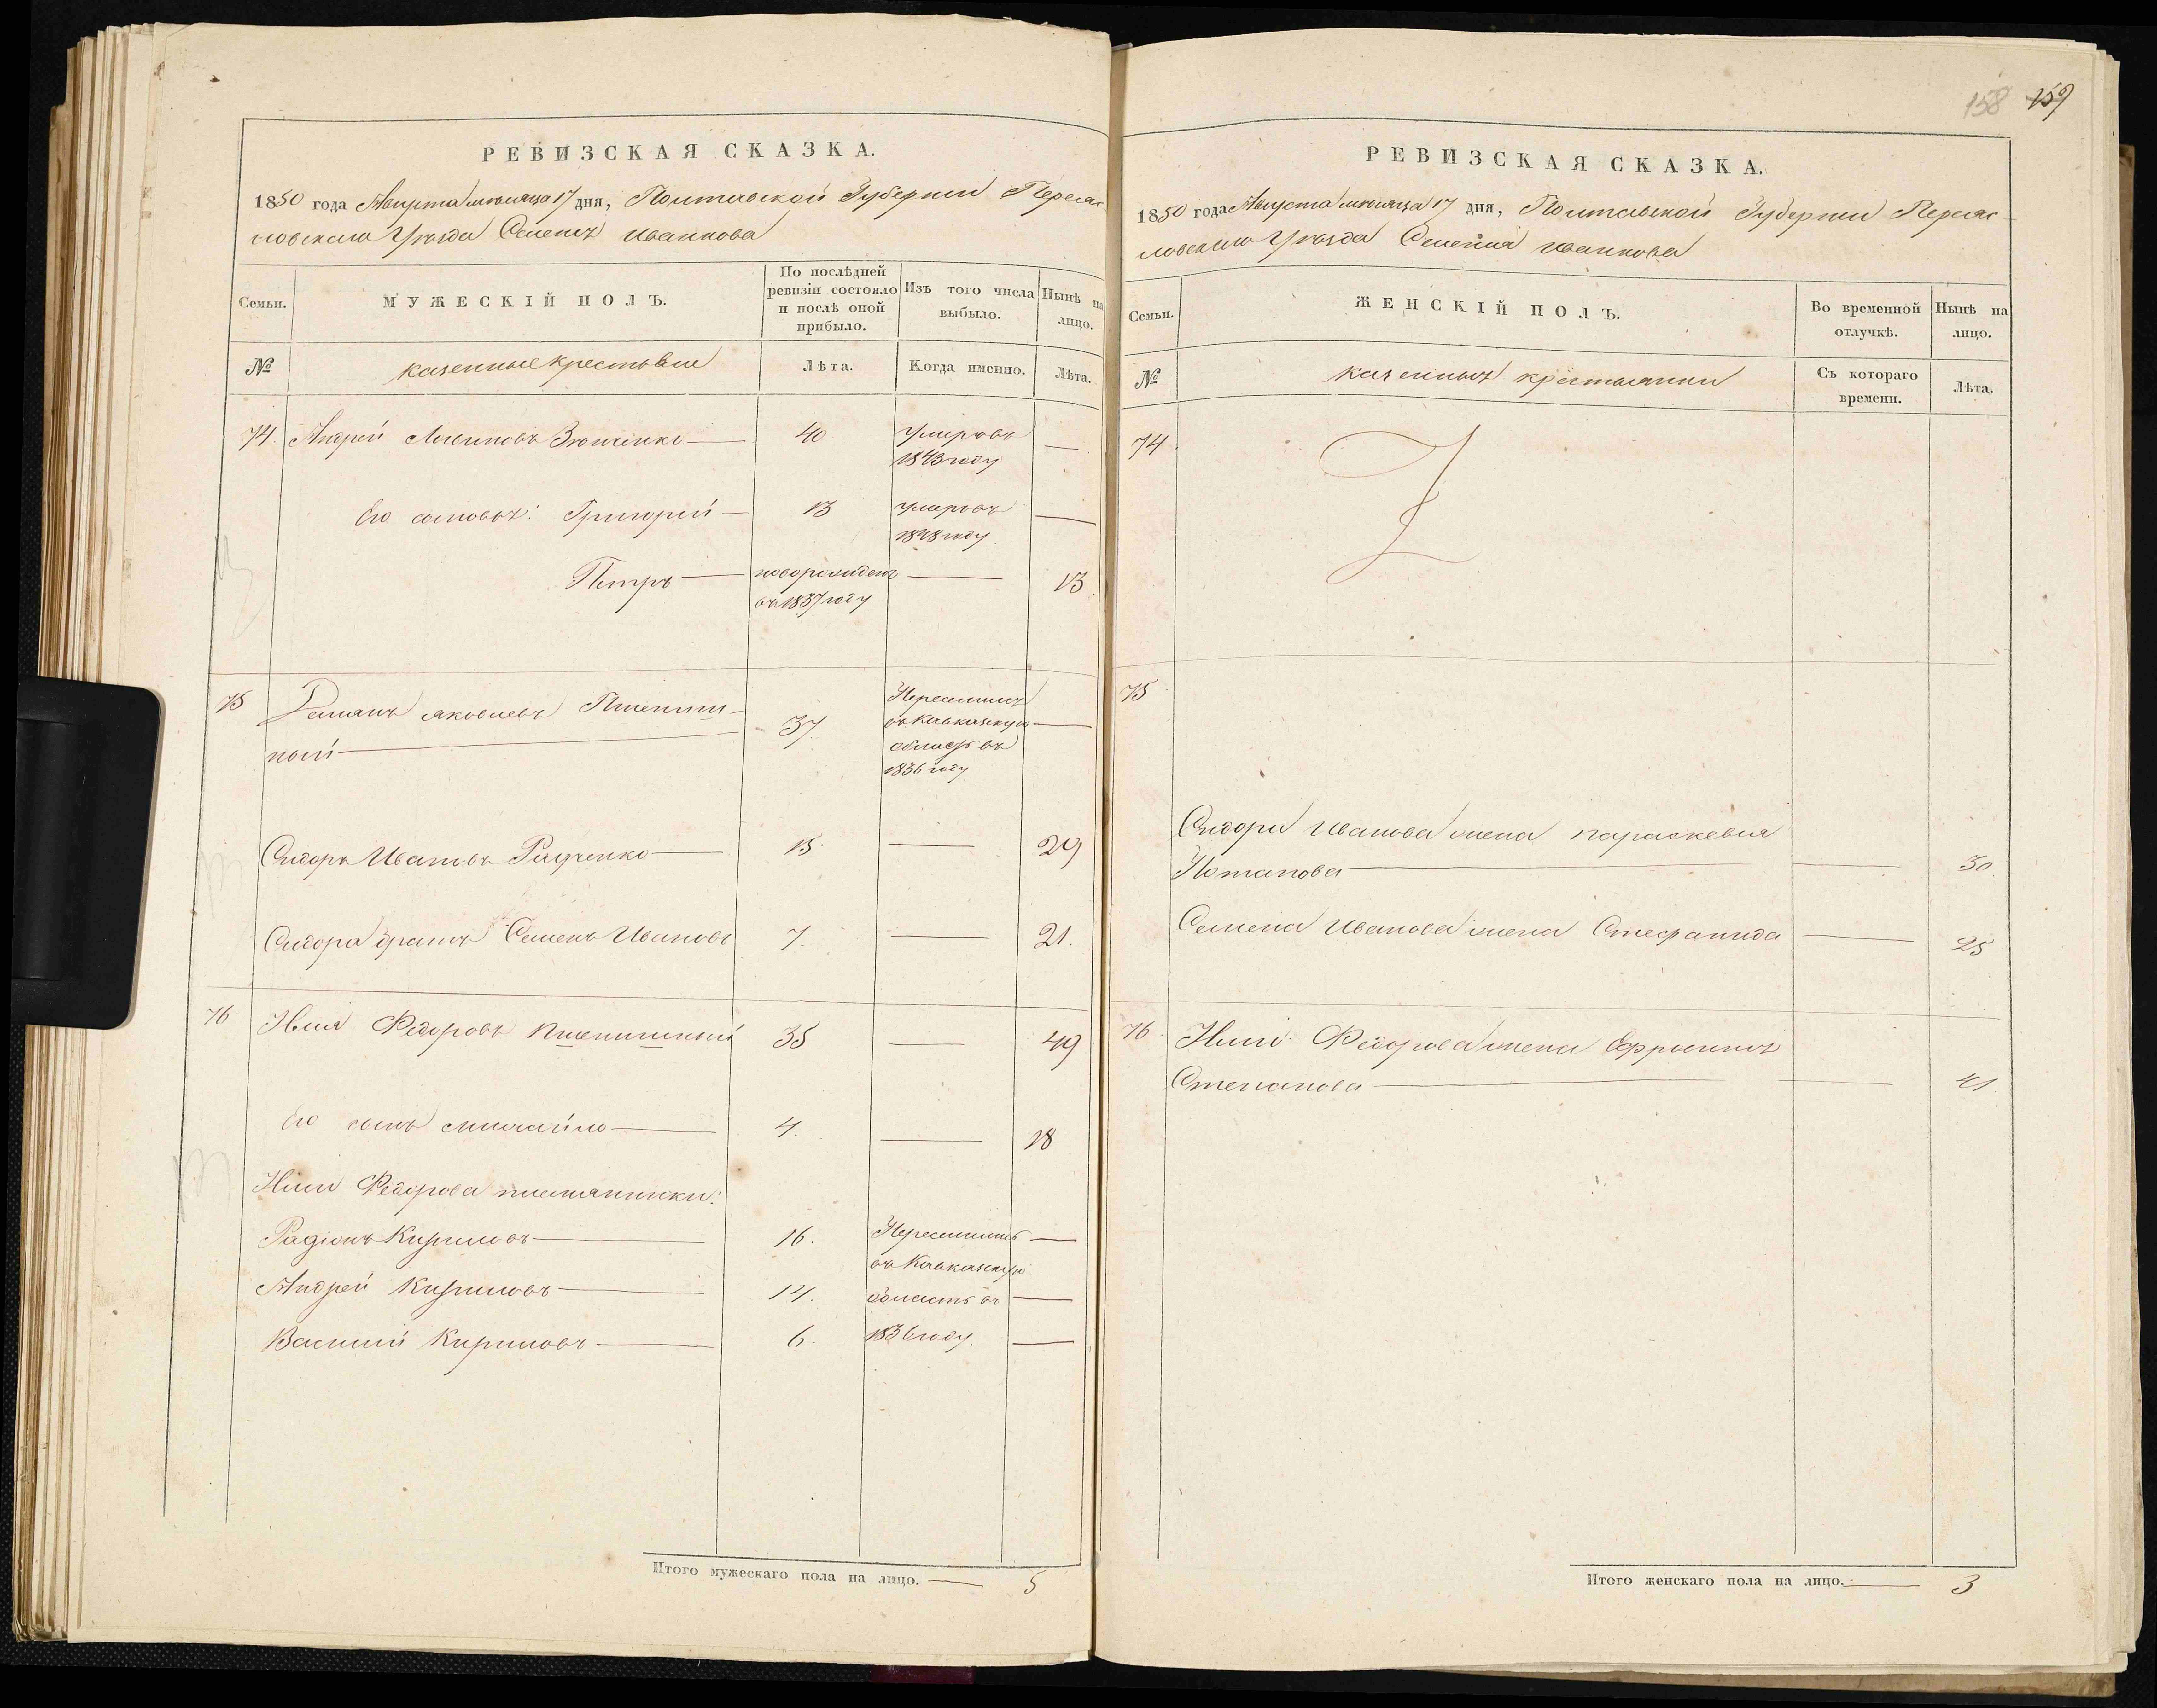 158 159
РЕВИЗСКАЯ СКАЗКА.
1850 года Августа мѣсяца 17 дня, Полтавской Губерніи Переяс
ловскаго Уѣзда Селенія Иванкова
Семьи.
МУЖЕСКІЙ ПОЛЪ.
По послѣдней
ревизіи состояло
и послѣ оной
прибыло.
Изъ того числа
выбыло.
Нынѣ на
лицо.
№
казенные крестьяне
Лѣта.
Когда именно.
Лѣта.
74. Андрей Зюченко — 40 Умеръ въ —
1843 году
Его сыновья: Григорей — 13 умеръ въ —
1848 году
Петръ — новорожденъ — 13
въ 1837 году
75 Романъ Яковлевъ Пшенич-
ной — 37. Переселилъ
въ Кавказскую —
область въ
1836 году
Сидоръ Ивановъ Радченко — 15. — 29
Сидора братъ Семенъ Ивановъ 7. — 21.
76 Илія Федоровъ Пшеничный 35 — 49
Его сынъ Михайло — 4. — 18
Иліи Федорова племянники:
Радіонъ Кириловъ — 16. Переселилъ —
въ Кавказскую
Андрей Кириловъ — 14. область въ —
Василій Кириловъ — 6. 1836 году. —
Итого мужескаго пола на лицо. — 5
РЕВИЗСКАЯ СКАЗКА.
1850 года Августа мѣсяца 17 дня, Полтавской Губерніи Переяс
ловскаго Уѣзда Селенія Иванкова
Семьи.
ЖЕНСКІЙ ПОЛЪ.
Во временной
отлучкѣ.
Нынѣ на
лицо.
№
казенныя крестьянки
Съ котораго
времени.
Лѣта.
74
75
Сидора Иванова жена Параскевия
Потапова — — 30.
Семена Иванова жена Стефанида — 25
76. Иліи Федорова жена Ефросинія
Степанова — — 41.
Итого женскаго пола на лицо. — 3